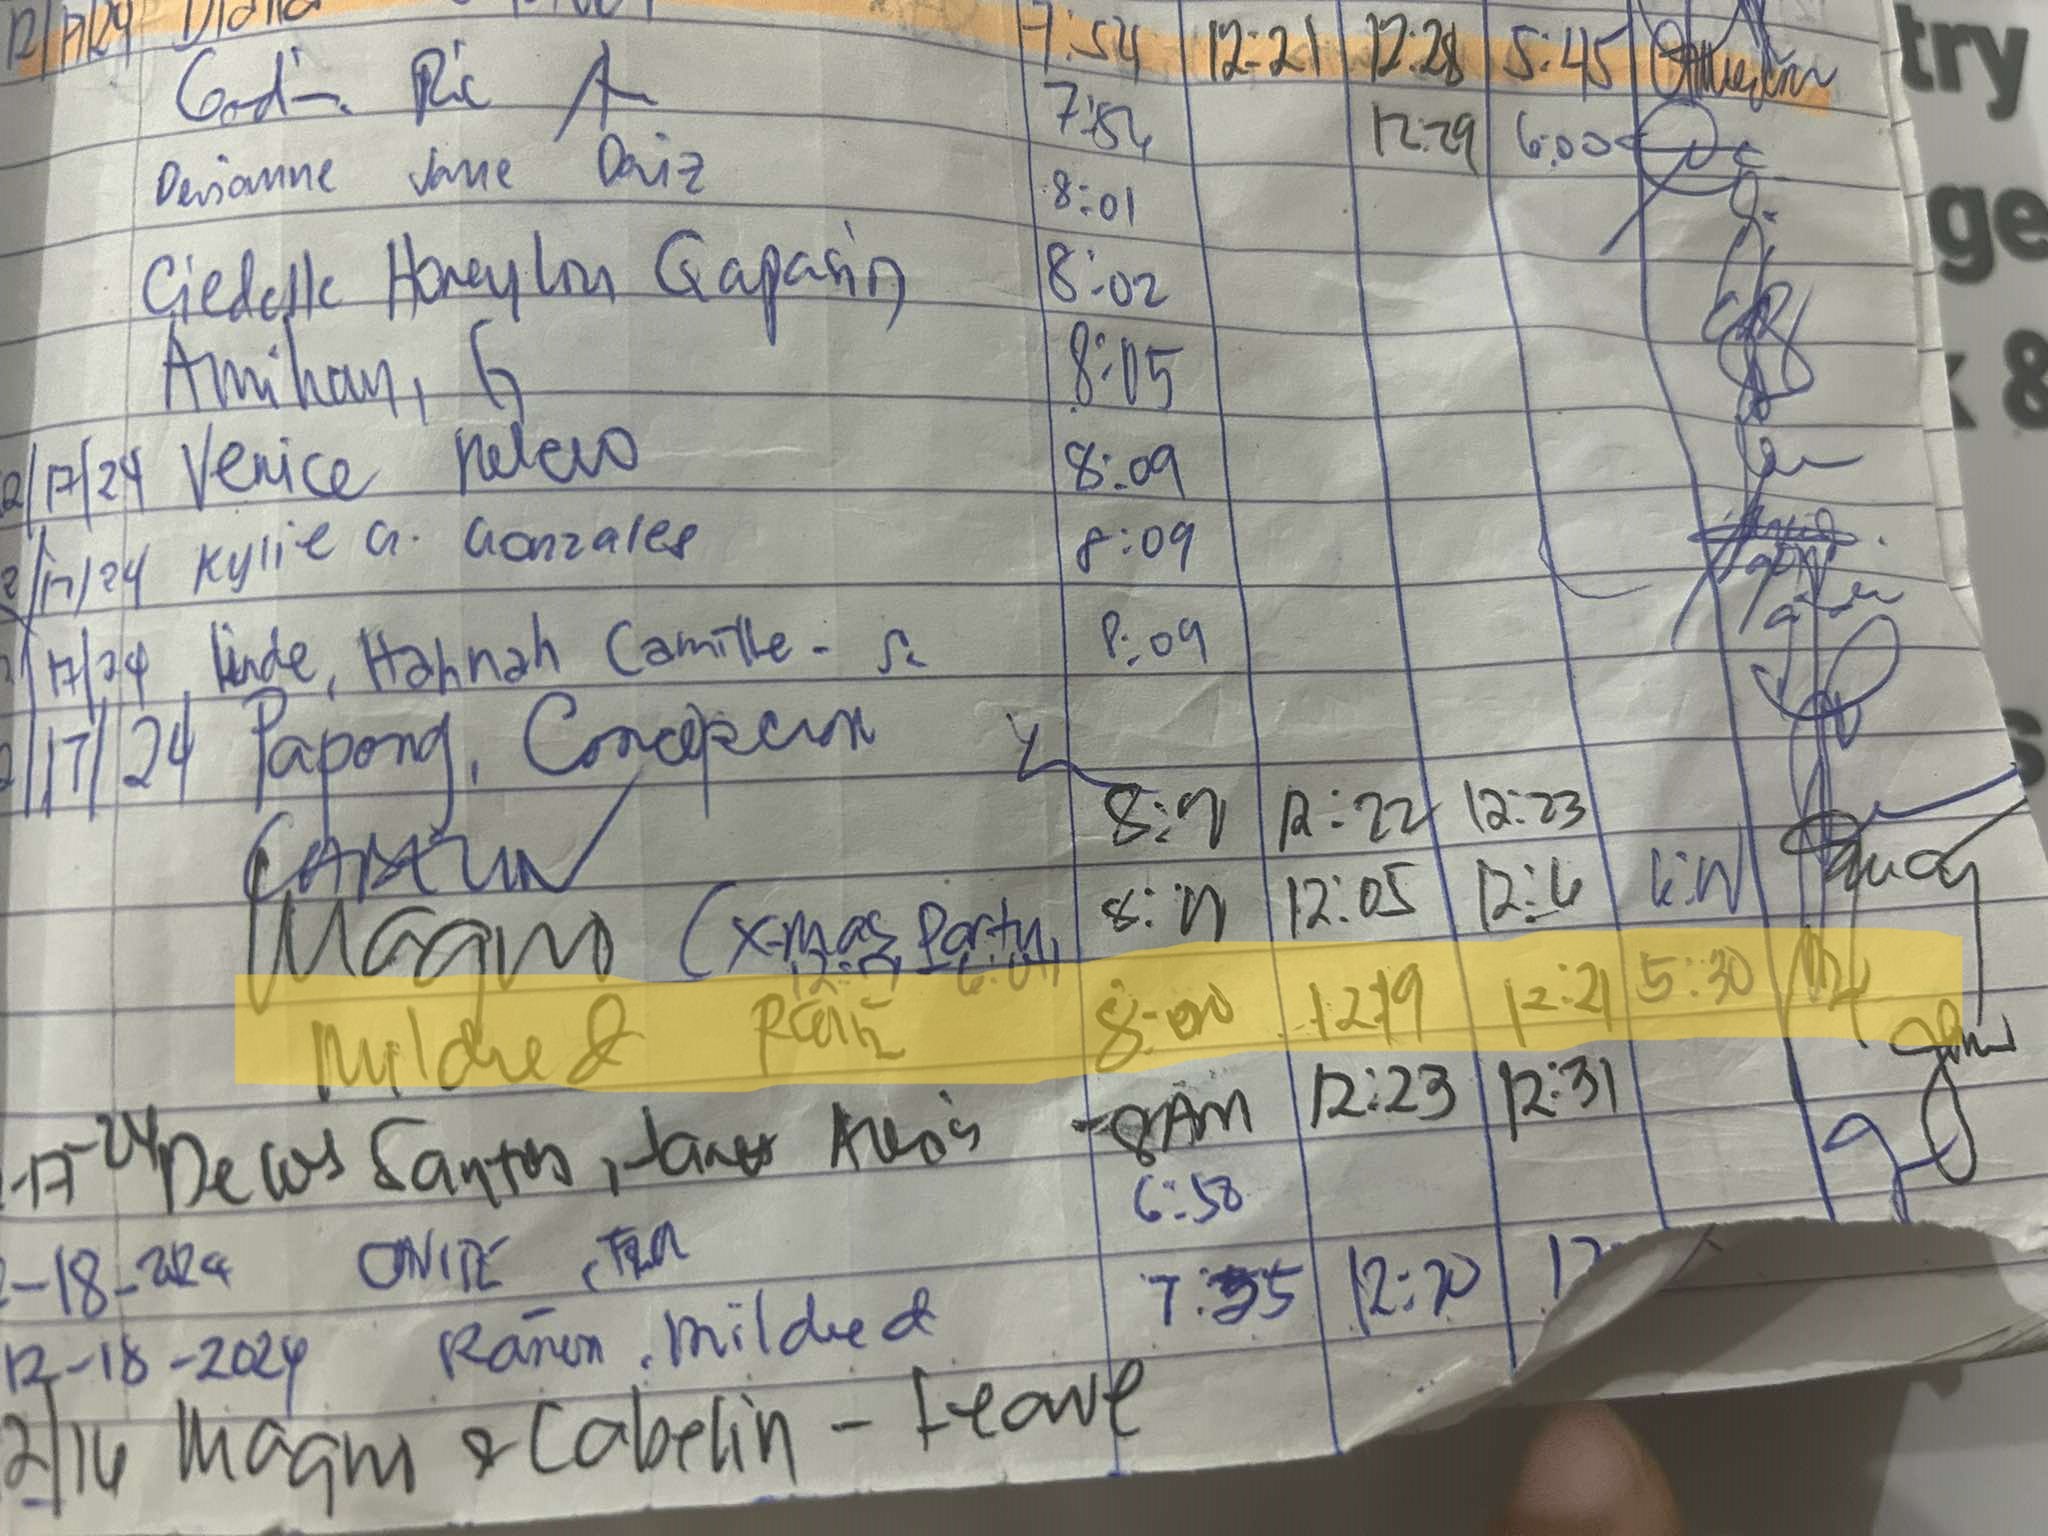 12/17/24 Diana 7:54 12:21 12:28 5:45
try
Ric A 7:54 12:29 6:00
Jane Doriz 8:01
ge
Giedelle Honeylou Gapasin 8:02
Amihan, G 8:05
&
12/17/24 Venice Relevo 8:09
2/17/24 Kylie G. Gonzales 8:09
2/17/24 Linde, Hannah Camille - S. 8:09
2/17/24 Papong, Concepcion
s
8:17 12:22 12:23
Magno (X-mas Party, 8:17 12:05 12:6
Mildred 8:00 12:19 12:21 5:30
-17-24 De Los Santos, Alexis - 8AM 12:23 12:31
-18-2024 6:58
12-18-2024 Rañon, Mildred 7:35 12:20 12
2/16 Magno & Cabelin - Leave